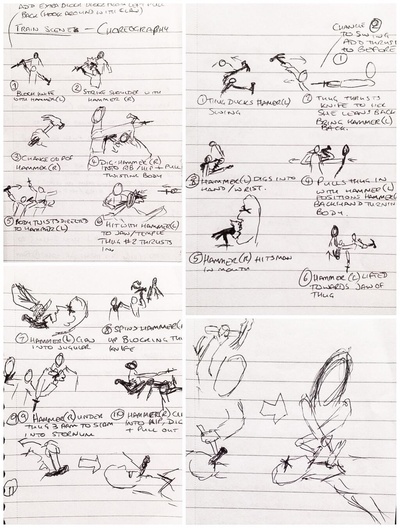 ADD EXTRA BLOCK
BACK (HOOK AROUND WITH CLAW)
TRAIN SCENE - CHOREOGRAPHY
① BLOCK KNIFE
WITH HAMMER (L)
② STRIKE SHOULDER WITH
HAMMER (R)
③ CHANGE UP OF
HAMMER (R)
④ DIG HAMMER (R)
INTO RIB/HIP + PULL
TWISTING BODY
⑤ BODY TWISTS
TO HAMMER (L)
⑥ HIT WITH HAMMER (L)
TO JAW/TEMPLE
THUG #2 THRUSTS
IN
⑦ HAMMER (L) CLAW
INTO JUGULAR
⑧ SPINS HAMMER (L)
UP BLOCKING THE
KNIFE
⑨ HAMMER (R) UNDER
THUG 3 ARM TO SLAM
INTO STERNUM
⑩ HAMMER (R)
INTO HIP, DIG
+ PULL OUT
⑪
CHANGE ②
TO SWING
ADD THRUST
TO BEFORE
①
① THUG DUCKS HAMMER (L)
SWING
② THUG THRUSTS
KNIFE TO
SHE LEANS BACK
BRING HAMMER (L)
BACK.
③ HAMMER (L) DIGS INTO
HAND/WRIST.
④ PULLS THUG IN
WITH HAMMER (L)
POSITIONS HAMMER
BACK AND TURNING
BODY.
⑤ HAMMER (R) HITS MAN
IN MOUTH
⑥ HAMMER (L) LIFTED
TOWARDS JAW OF
THUG